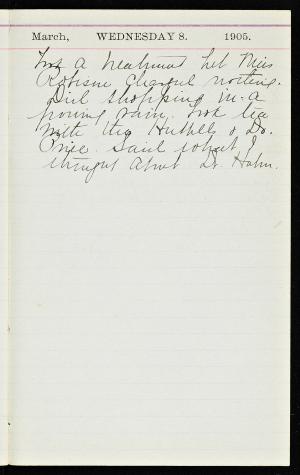 March, WEDNESDAY 8. 1905.
Took a treatment but Miss
Robison charged nothing.
Did shopping in a
pouring rain. Took tea
with the Hubbels & Dr.
Price. Said what I
thought about Dr. Hahn.